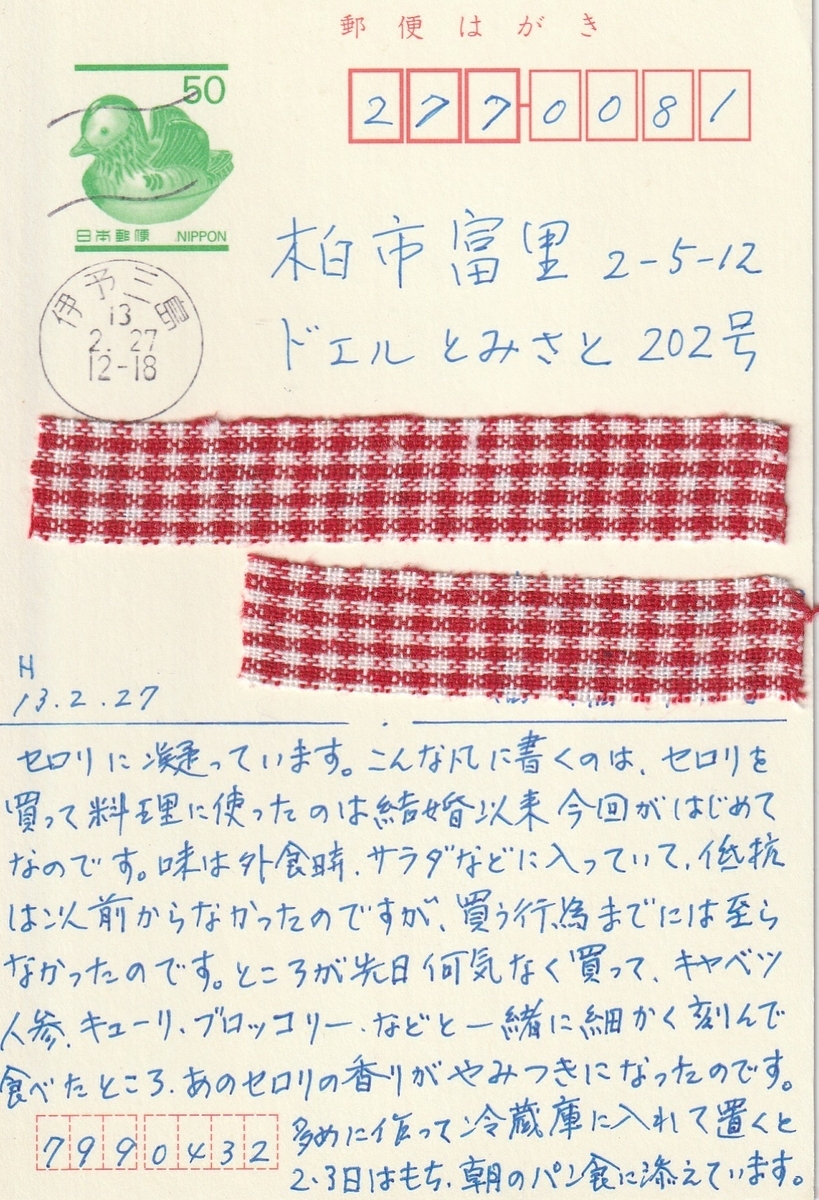 郵便はがき
50
日本郵便 NIPPON
277-0081
伊予三島
13
2.27
12-18
柏市富里 2-5-12
ドエルとみさと 202号
H
13.2.27
セロリに凝っています。こんな風に書くのは、セロリを
買って料理に使ったのは結婚以来今回がはじめて
なのです。味は外食時、サラダなどに入っていて、低抗
は以前からなかったのですが、買う行為までには至ら
なかったのです。ところが先日何気なく買って、キャベツ
人参、キューリ、ブロッコリー、などと一緒に細かく刻んで
食べたところ、あのセロリの香りがやみつきになったのです。
多めに作って冷蔵庫に入れて置くと
2、3日はもち、朝のパン食に添えています。
7990432